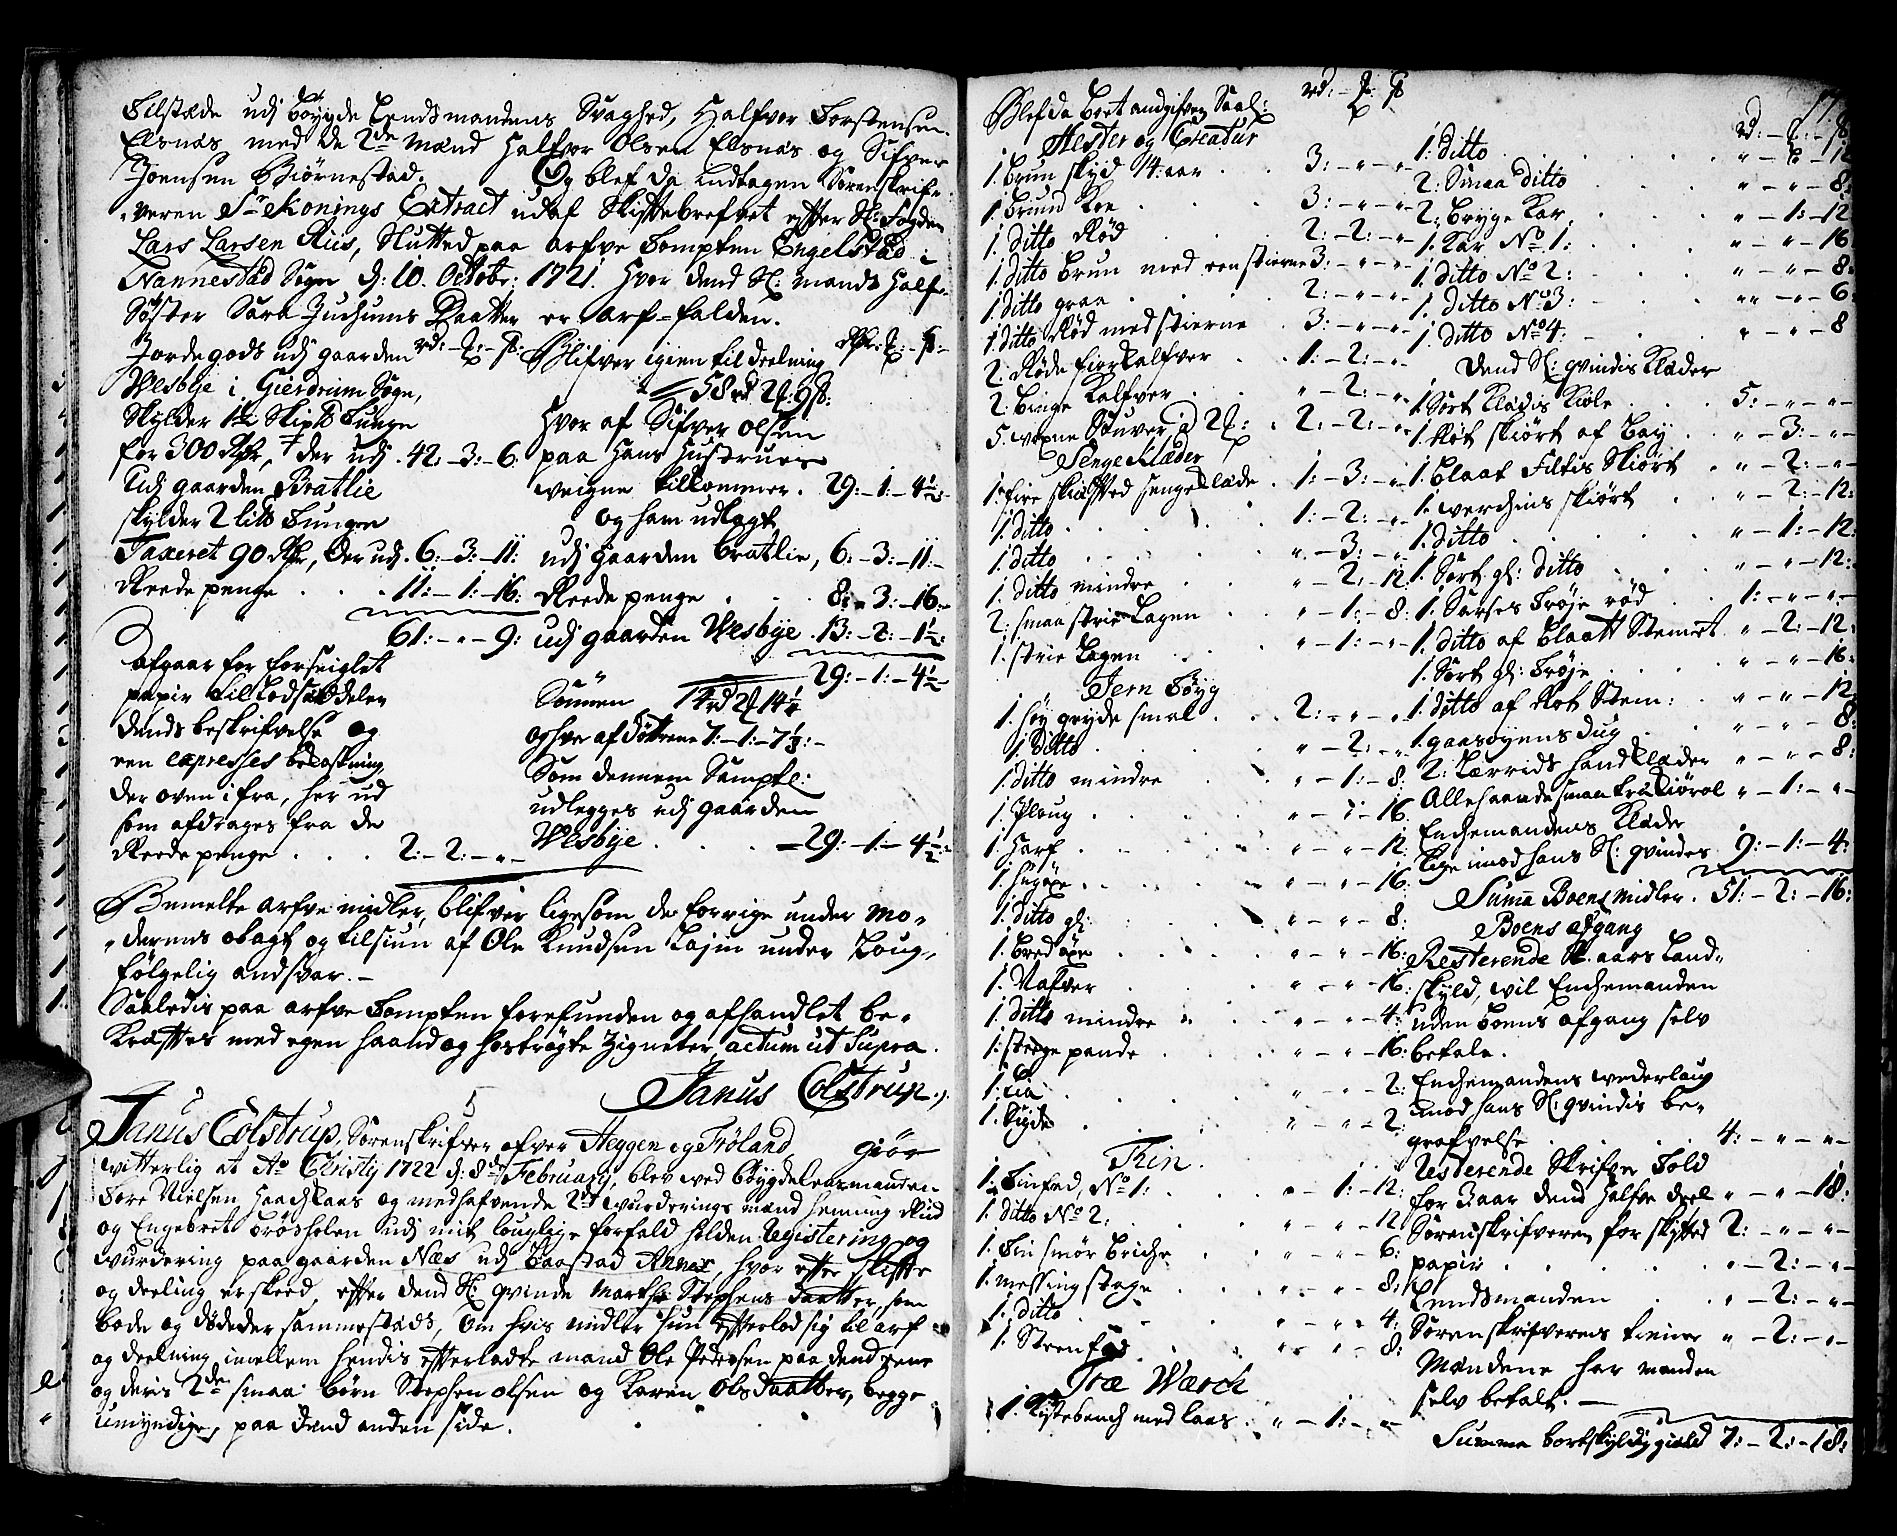 Tilstæde udj bøygde Lendsmandens Svaghed, Halfvor Torstensen
Elsnæs med de 2de Mænd Halfvor Olsen Elsnæs og Sifver
Joensen Biørnestad. Og blef da indtagen Sørenskrif-
veren Sr Konings Extract udaf Skiftebrefvet efter Sl: Fogden
Lars Larsen Riis, Slutted paa arfve Tompten Engelstad i
Nannestad Sogn d: 10. Octobr: 1721. hvor dend Sl: mands Half-
Søster Sara Juchums Daatter er arf-falden.
Jordegods udj gaarden rd:-2:-ß:
Wesbye i Gierdrum Sogn,
Skylder 1½ Skipd Tunge
for 300 Rdr, der udj . 42:-3:-6:
Udj gaarden Bratlie
skylder 2 lits Tungen
Taxeret 90 Rdr, der udj . 6:-3:-11:
Reede penge . . . 11:-1:-16:
61:-"-9:
Afgaar for forseiglet
papir til Lodsæddelen
dends beskrifvelse og
een expresses bekostning
der oven i fra, her ud
som afdrages fra de
Reede penge . . . 2:-2:-"-
Blifver igien til deelning
58 rd 2 9ß:
Hvor af Sifver Olsen
paa Hans Hustrues
weigne tilkommer . 29:-1:-4½:
og ham udlagt
udj gaarden Bratlie, 6:-3:-11:-
Reede penge . . . 8:-3:-16:-
udj gaarden Wesbye . 13:-2:-1½:
29:-1:-4½
Sønnen 14 rd 2 14¼
og hver af døttrene 7:-1:-7⅛:-
Som dennem Samptl:
udlegges udj gaarden
Wesbye . . . -29:-1:-4½:-
Bemelte arfve midler, blifver ligesom de forrige under mo-
derens Varetegt og tilsiun af Ole Knudsen Lajm under Loug-
følgelig andsvar. -
Saaledis paa arfve Tompten forefunden og afhandlet be-
kræftes med egen haand og hostrøgte Zigneter, actum ut Supra.
Janus Colstrup.
5
Janus Colstrup, Sørenskrifver ofver Heggen og Frøland giør
witterlig at Ao Christj 1722 d: 8de February, blev ved bøygdelensmanden
Tore Nielsen Haachaas og medhafvende 2de wurderings mænd Henning Riid
og Engebret Brødsholen udj mit louglige forfald holden Registering og
wurdering paa gaarden Næs udj Baastad Annex, hvor efter skifte
og deeling er skeed, efter dend Sl: qvinde Marthe Stephens Daatter, som
boede og døde der sammestæds, Om hvis midler hun efterlod sig til arf
og deelning imellem hendis efterladte mand Ole Pedersen paa dend Eene
og deris 2de smaa børn Stephen Olsen og Karen Ols Daatter, begge
umyndige, paa dend anden side.
Blef da boet andgifven Saal: rd:-2:-ß
Hester og Creatur
1. brun skyd 14. aar . . 3:-"-"-
1. brund Koe . . . 3:-"-"-
1. ditto Rød . . . 2:-2:-"-
1. ditto brun med een stierne 3:-"-"-
1. ditto graa . . . 2:-"-"-
1. ditto Rød med stierne . 3:-"-"-
2. Røde fiorkalfver . . 1:-2:-"-
2. binge Kalfver . . "-2:-"-
5. woxne Stuver a 2 : . 2:-2:-"-
Senge Klæder
1. fire skiafted sengeklæde . 1:-3:-"-
1. ditto . . . 1:-2:-"-
1. ditto . . . "-3:-"-
1. ditto mindre . . "-2:-12
2: smaa strie Lagen . . "-1:-8:
1. strie Lagen . . . "-1:-"-
Jern Tøyg
1. høy gryde smal . . 2:-"-"-
1. ditto . . . "-2:-"-
1. ditto mindre . . "-1:-8.
1. Ploug . . . "-"-16.
1. Harf . . . "-"-12.
1. hugøxe . . . "-"-16.
1. ditto gl: . . . "-"-8.
1. bred øxe . . . "-"-16:
1. Nafver . . . "-"-16:
1. ditto mindre . . . "-"-4:
1. steege pande . . . "-"-16:
1. Lia . . . "-"-2:
1. Sigde . . . "-"-2:
Thin.
1. Tinfad, No 1: . . "-1:-12:
1. ditto No 2: . . "-"-12
1. Tin smør briche . . "-"-6:
1. messing stage . . "-"-8:
1. ditto . . . "-"-4:
1. Steenfad . . . "-"-8:
Træ Wærck
1. Kistebench med laas . "-1:-"-
17
rd:-2:-ß
1. ditto . . . "-"-12
2: Smaa ditto . . . "-"-8:
2: brygge Kar . . . "-1:-12
1. Kar No 1: . . . "-"-16
1. ditto No 2: . . . "-"-8.
1. ditto No 3: . . . "-"-6:
1. ditto No 4: . . . "-"-8
Dend Sl: qvindis Klæder
1. Sort Klædis Kiole . . 5:-"-"-
1. Røt skiørt af bay . . "-3:-"-
1. blaat Filtis Skiørt . "-2:-"-
1. werchens skiørt . . "-2:-12:
1. ditto . . . "-1:-12:
1. Sort gl: ditto . . "-"-12:
1. Sarses Trøje rød . . 1:-"-"-
1. ditto af blaatt Stemet . "-2:-12:
1. Sort gl: Trøje . . . "-"-16:
1. ditto af Røt Stem: . "-"-12
1. gaasøyens dug . . "-"-8:
2: Lærrids handklæder "-"-8:
Allehaande smaa trækiørol "-1:-"-
Enchemandens Klæder
lige imod hans Sl: qvindes 9:-1:-4:
Suma Boens midler . 51:-2:-16:
Boens afgang
Resterende 1. aars Land-
skyld, wil Enchemanden
uden boens afgang selv
betale.
Enchemandens wederlaug
imod hans Sl: qvindis be-
grafvelse . . . 4:-"-"-
Resterende Skrifver Told
for 3 aar dend Halfve deel "-"-18:
Sørenskrifveren for skifted 2:-"-"-
papir . . . "-2:-"-
Lendsmanden . . "-2:-"-
Sørenskrifverens tienner "-2:-"-
Mændene har manden
selv betalt. -
Summa bortskyldig gield 7:-2:-18: